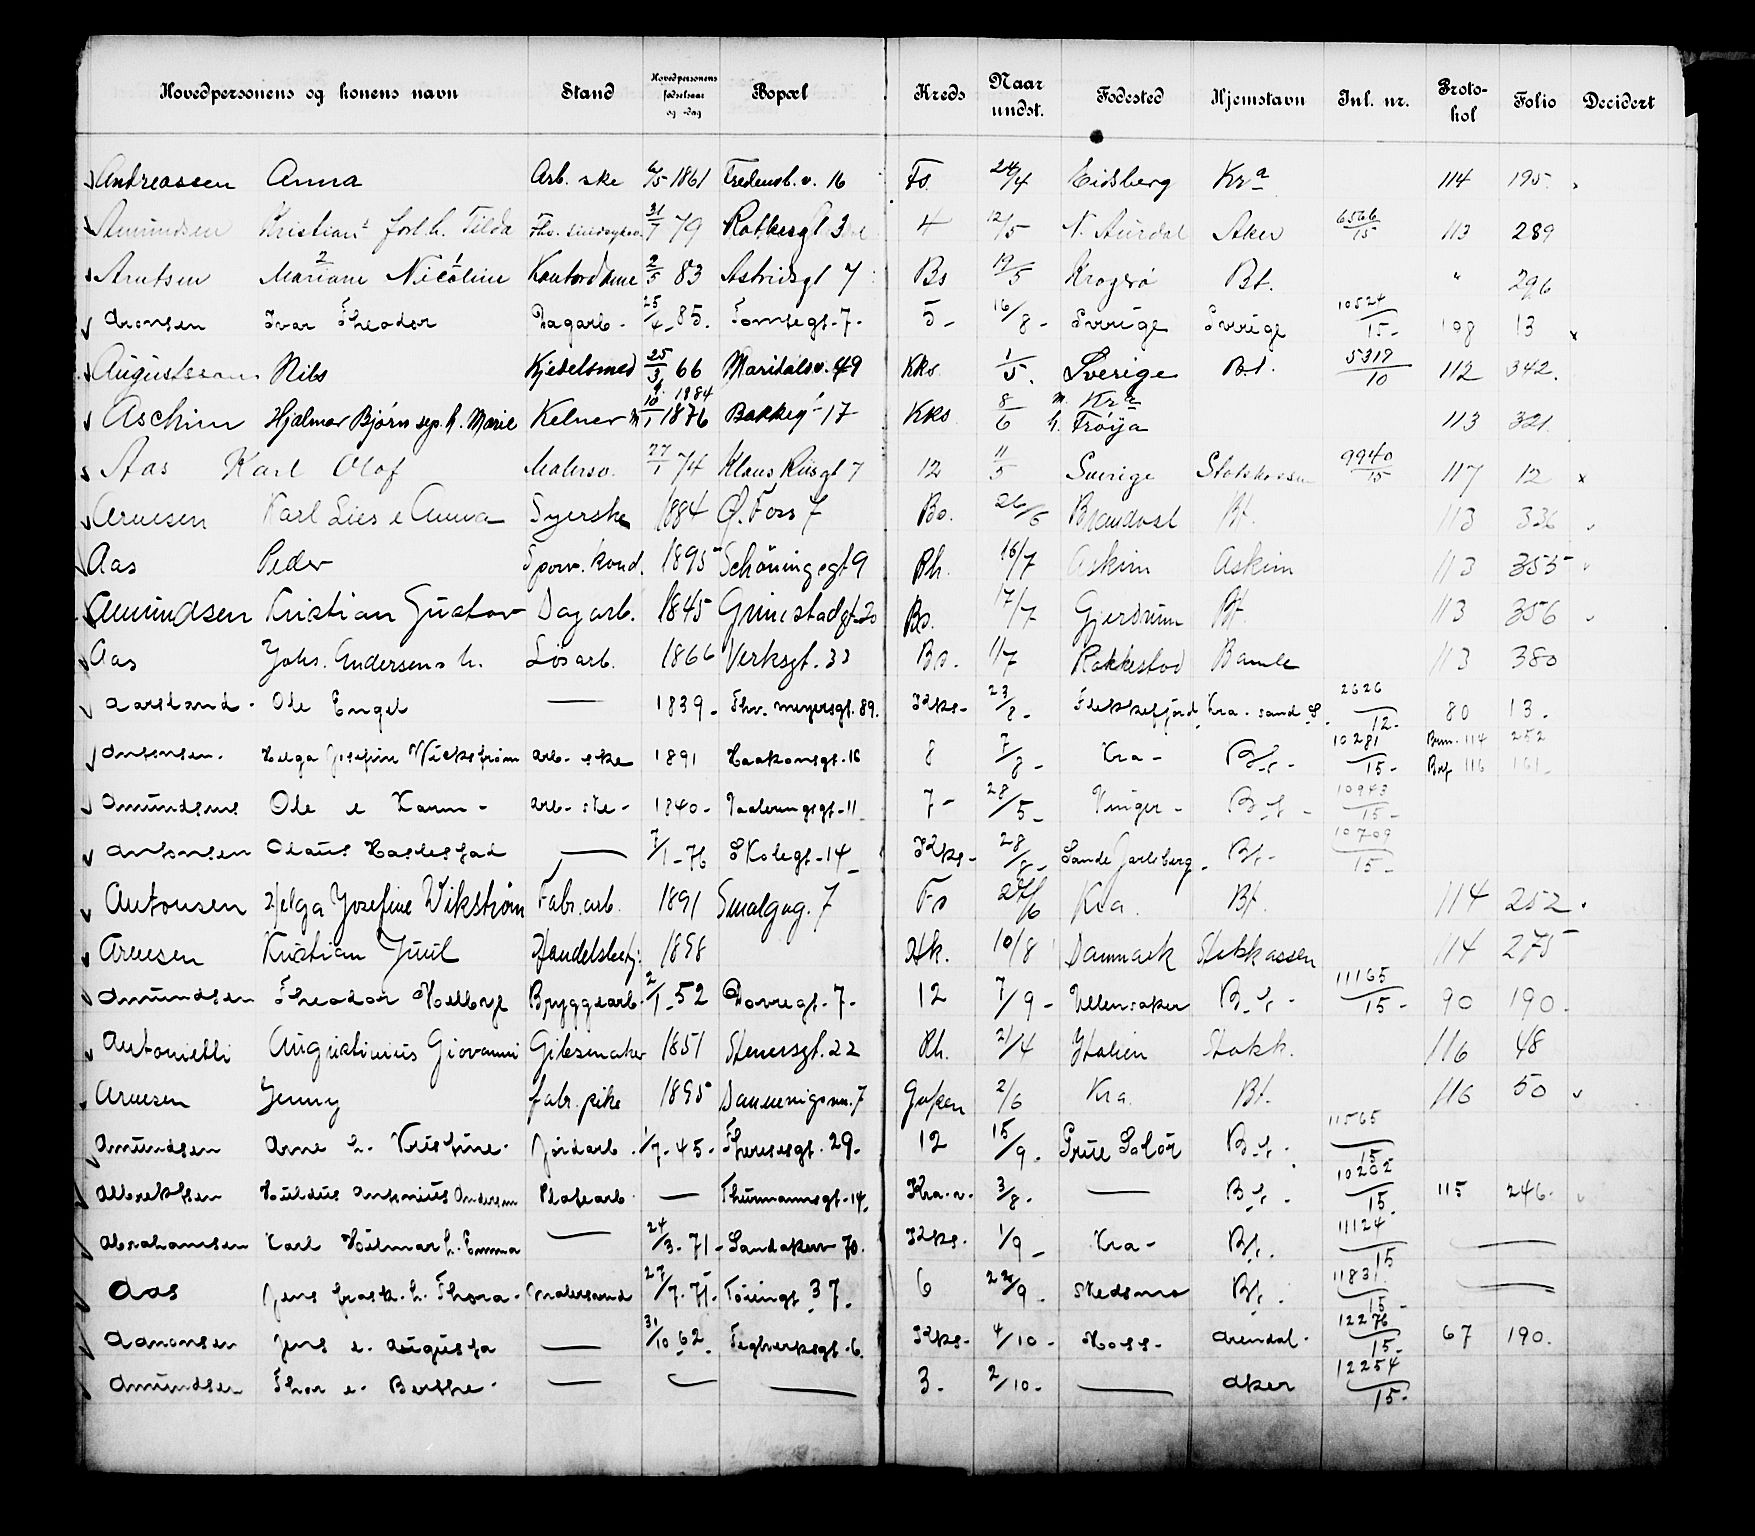 Hovedpersonens og konens navn Stand Hovedpersonens fødselsaar og -dag Bopæl Kreds Naar undst. Fødested Hjemstavn Inl. nr. Protokol Folio Decidert
Andreassen Anna Arb. ske 6/5 1861 Fredensb.v. 16 Fs. 24/4 Eidsberg Kra 114 195
Amundsen Kristian forl. h. Tilda 31/7 79 4 12/5 N. Aurdal Aker 6566/15 113 289
Arntsen Mariane Nicoline Kontordame 2/5 83 Astridsgt 7 Bs 19/5 Kragerø Bt. " 296
Aronsen Ivar Theodor Dagarb. 25/4 85. Tomtegt. 7. 5 - 16/8 - Sverige Sverige 10524/15 - 198 13 x
Augustssøn Nils Kjedelsmed 25/3 66 Maridalsv. 49 Kks. 1/5. Sverige Bt. 5319/10 112 342.
Aschim Hjalmar Bjørn sep. h. Marie Kelner 1884 10/1 1876 Bakkeg 17 Kks 8/6 m. Kra h. Frøya 113 321
Aas Karl Olof Malersv. 27/1 74 Klaus Riisgt 7 12 11/5 Sverige Stokkassen 9940/15 117 12 x
Arnesen Karl Lies e Anna Syerske 1884 Ø. Foss 7 Bs. 26/5 Brandval Bt. 113 336
Aas Peder Sporv. kond. 1895 Schøningsgt 9 Rh. 16/7 Askim Askim 113 355
Amundsen Kristian Gustav Dagarb. 1845 Grimstadgt. 20 Bs. 17/7 Gjerdrum Bt. 113 356
Aas Johs. Andersens h. Løsarb. 1866 Verksgt. 33 Bs. 1/7 Rakkestad Bamle 113 380
Aarsland - Ole Engel — 1839 - Thv. Meyersgt. 89. Kks - 23/8 - Flekkefjord Kra. sand S. 2626/12 - 80 13.
Antonsen. Helga Josefine Wickstrøm arb. - ske 1891 Haakonsgt. 16 8 7/8 - Kra - Bt. - 10281/15 - 114 252 116 161 -
Amundsens Ole e Karen - arb - ske - 1840 - Vaalerengsgt - 11 - 7 - 28/5 - Vinger - Bt - 10943/15 -
Antonsen Olaus Haslestad — 7/1 - 76 Skolegt - 14 - Kks - 28/8 - Sande Jarlsberg - Bt - 10709/15 -
Antonsen Helga Josefine Wikstrøm Fabr. arb. 1891 Smalgug. 7 Fs 24/6 Kra. Bt. 114 252
Arnesen Kristian Juul Handelsbetj. 1898 Hk. 10/8 Danmark Stokkassen 114 275
Amundsen Theodor Bryggearb. 2/1 - 52 Dovregt. - 7 - 12 7/9 - Ullensaker Bt - 11165/15 - 90 190.
Antonielli Augustinius Giovanni Gibsmaker 1851 Stenersgt. 22 Rh. 21/4 Italien Stokk. 116 48
Arnesen Jenny fabr. pike 1895 Dannevigsvn. 7 2/6 Kra. Bt. 116 50
Amundsen Arne h. Kristine - Jordarb. 1/7 - 45 - Theresesgt. 29 - 12 15/9 - Grue Solør Bt. 11565/15
Albrektsen Andersen Platearb. — Thurmannsgt - 14 - Kra. v. 3/8 - — Bt - 10202/15 115 246.
Abrahamsen Karl Hilmar h. Emma — 24/3 - 71 - Sandakerv 70. Kks - 1/9 - Kra - Bt. 11124/15 —
Aas Jens h. Thora - Malersvend 27/7 - 71 - Tøiengt 37. 6 22/9 - Skedsmo Bt. 11831/15 - —
Aanonsen Jens e. Augusta — 31/10 62 - Teglverksgt - 6. Kks - 4/10 - Moss - Arendal - 12276/15 - 67 190.
Amundsen Thor e. Berthe - — — — 3 - 2/10 - — Aker 12254/15 -